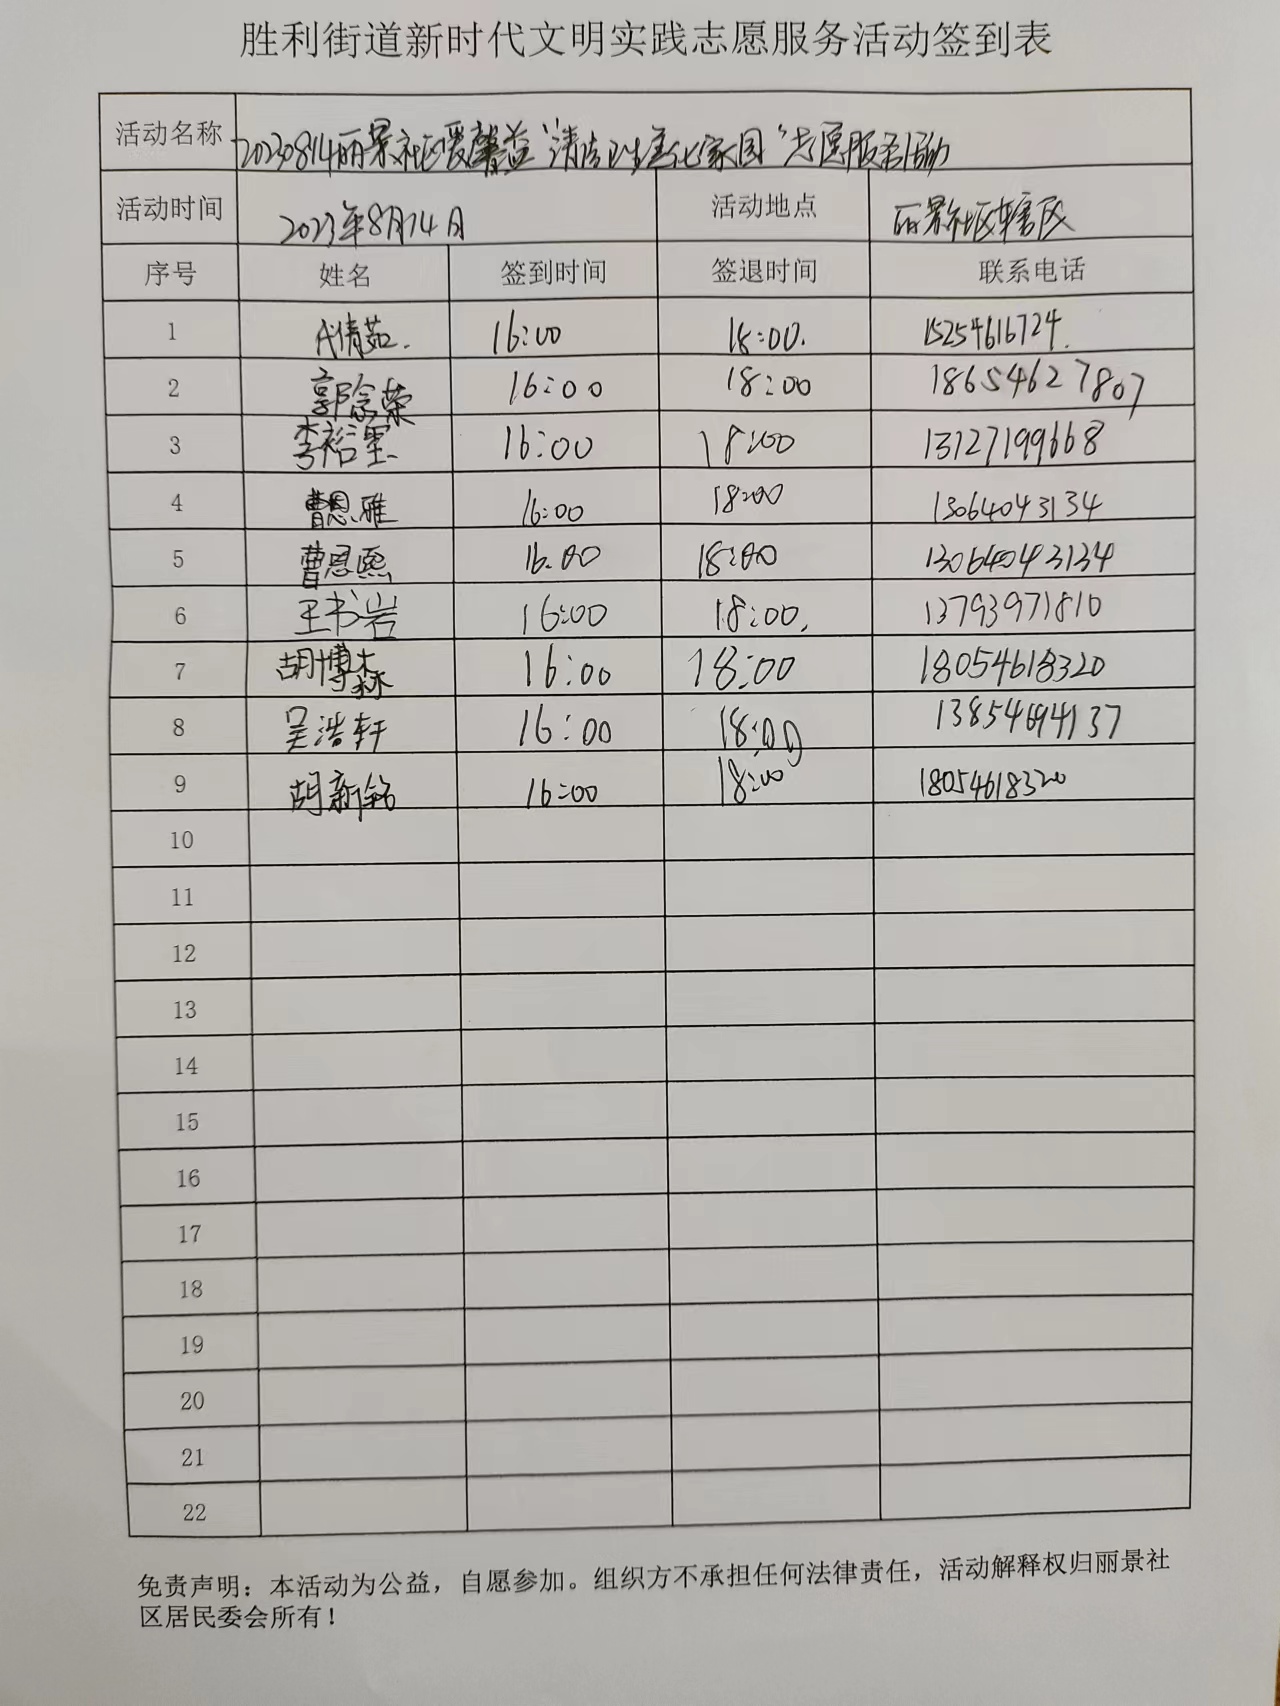 胜利街道新时代文明实践志愿服务活动签到表
活动名称 20230814丽景社区爱馨益“清洁卫生美化家园”志愿服务活动
活动时间 2023年8月14日 活动地点 丽景社区辖区
序号 姓名 签到时间 签退时间 联系电话
1 代倩茹. 16:00 18:00. 15254616724.
2 郭念荣 16:00 18:00 18654627807
3 李裕 16:00 18:00 13127199668
4 曹恩雅 16:00 18:00 13064043134
5 曹恩熙 16:00 18:00 13064043134
6 王书岩 16:00 18:00. 13793971810
7 胡博森 16:00 18:00 18054618320
8 吴浩轩 16:00 18:00 13854694137
9 胡新铭 16:00 18:00 18054618320
10
11
12
13
14
15
16
17
18
19
20
21
22
免责声明：本活动为公益，自愿参加。组织方不承担任何法律责任，活动解释权归丽景社
区居民委会所有！